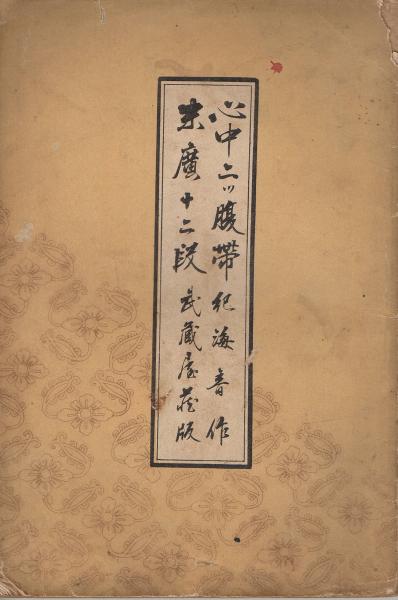 心中二ツ腹帶 紀海音作
末廣十二段 武蔵屋蔵版